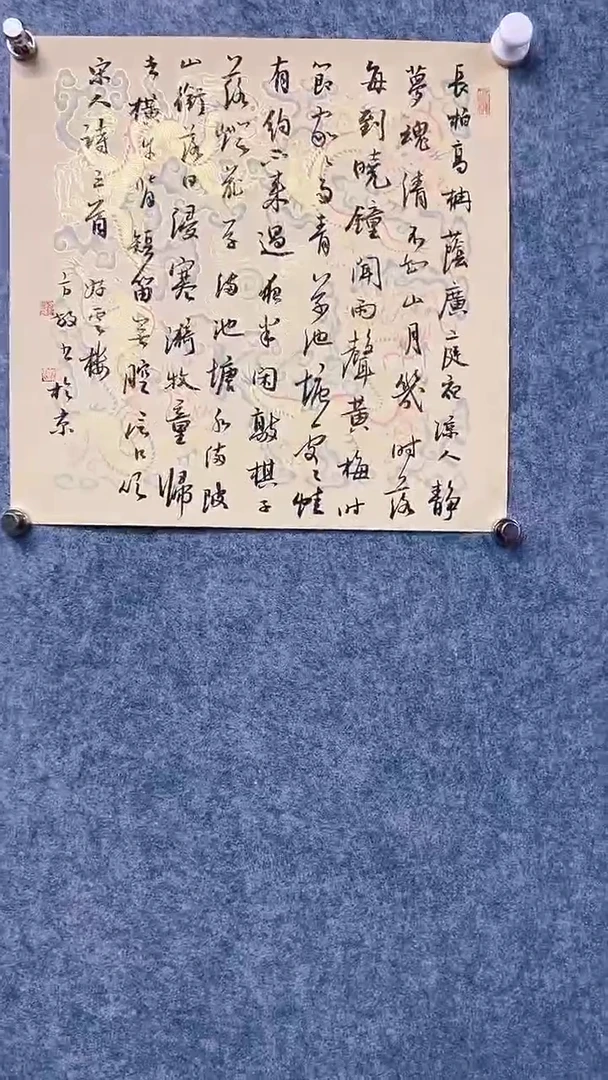 長柏高枏蔭廣庭夜涼人靜
夢魂清不知山月幾時落
每到曉鐘聞雨聲黃梅時
節家々雨青草池塘處々蛙
有約不來過夜半閑敲棋子
落燈花草滿池塘水滿陂
山銜落日浸寒漪牧童歸
去橫牛背短笛無腔信口吹
宋人詩三首 雲樓
方書於京